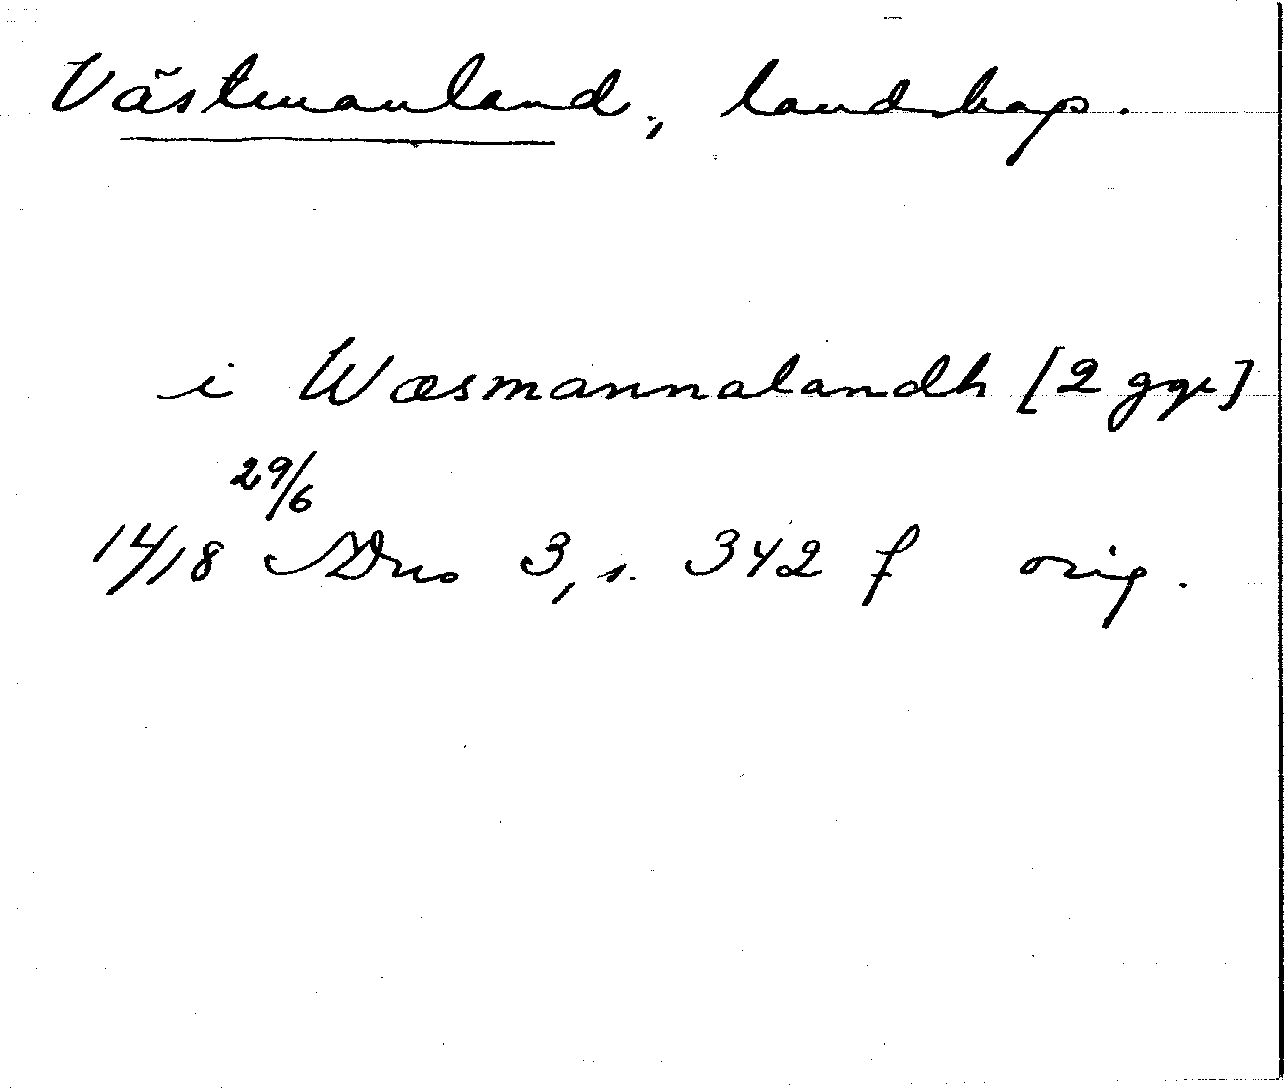 Västmanland, landskap.
i Wæsmannalandh [2 ggr]
29/6
14/18 SDns 3, s. 342 f orig.